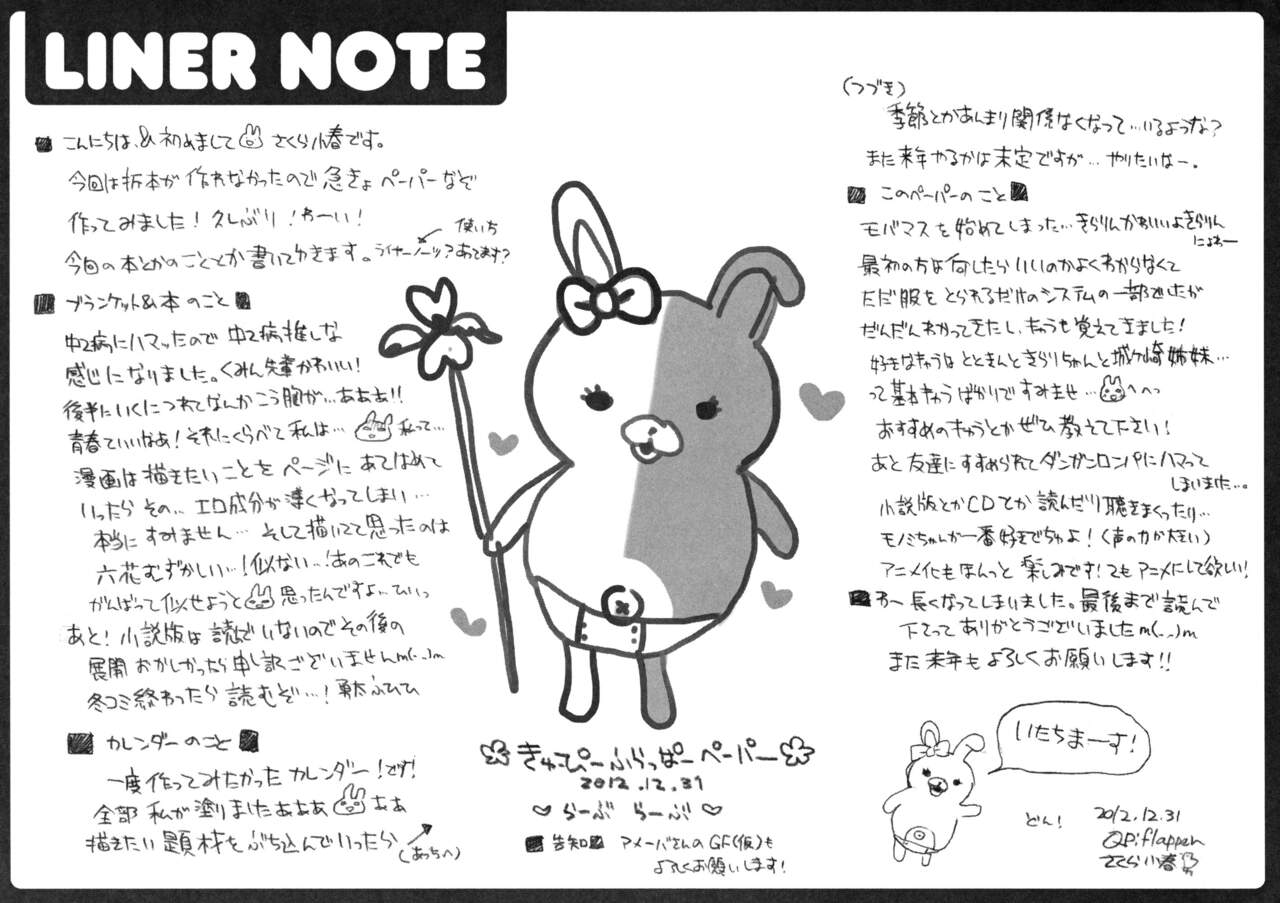 LINER NOTE
■ こんにちは、&初めまして さくら小春です。
今回は折本が作れなかったので急きょペーパーなぞ
作ってみました！久しぶり！わーい！
使いち
今回の本とかのこととか書いてゆきます。ライナーノーツ？あてます？
■ ブランケット&本のこと ■
中2病にハマッたので中2病推しな
感じになりました。くみん先輩かわいい！
後半にいくにつれてなんかこう胸が…ああぁ!!
青春ていいなあ！それにくらべて私は… 私って…
漫画は描きたいことをページにあてはめて
いったらその…エロ成分が薄くなってしまい…
本当にすみません…そして描いてて思ったのは
六花むずかしい…！似ない…！あのこれでも
がんばって似せようと 思ったんですよ…ひいっ
あと！小説版は読んでいないのでその後の
展開おかしかったら申し訳ございませんm(..)m
冬コミ終わったら読むぞ…！勇太ふひひ
■ カレンダーのこと ■
一度作ってみたかったカレンダー！です！
全部私が塗りましたあぁあ あぁ
描きたい題材をぶち込んでいったら
(あっちへ)
きゅーぴーふらっぱーペーパー
2012.12.31
らーぶ らーぶ
■ 告知 ■ アメーバさんのGF(仮)も
よろしくお願いします！
(つづき)
季節とかあんまり関係なくなって…いるような？
また来年やるかは未定ですが…やりたいなー。
■ このペーパーのこと ■
モバマスを始めてしまった…きらりんかわいいよきらりん
にょわー
最初の方は何したらいいのかよくわからなくて
ただ服をとられるだけのシステムの一部だったが
だんだんわかってきたし、キャラも覚えてきました！
好きなキャラはとときんときらりちゃんと城ヶ崎姉妹…
って基本キャラばかりですみませ… へへっ
おすすめのキャラとかぜひ教えて下さい！
あと友達にすすめられてダンガンロンパにハマって
しまいました…。
小説版とかCDとか読んだり聴きまくったり…
モノミちゃんが一番好きでちゅよ！(声の力が大きい)
アニメ化もほんっと楽しみです！2もアニメにして欲しい！
■ わ〜長くなってしまいました。最後まで読んで
下さってありがとうございましたm(..)m
また来年もよろしくお願いします!!
いたちまーす！
どん！
2012.12.31
QP:flapper
さくら小春